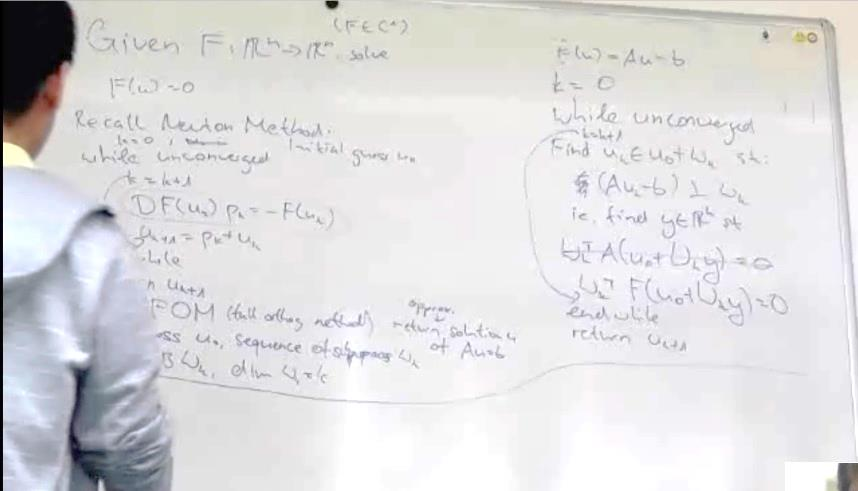 (F∈C¹)
Given F: ℝⁿ→ℝⁿ, solve
F(u)=0
Recall Newton Method.
k=0, Initial guess u₀
while unconverged
k=k+1
DF(uₖ)pₖ=-F(uₖ)
uₖ₊₁=pₖ+uₖ
while
uₖ₊₁
FOM (full orthog method) approx.
return solution u
of Au=b
ess u₀, sequence of subspaces Wₖ
Wₖ, dim Wₖ=k
F(u)=Au-b
k=0
while unconverged
k=k+1
Find uₖ∈u₀+Wₖ st:
(Auₖ-b)⊥Wₖ
ie, find y∈ℝᵏ st
WₖᵀA(u₀+Wₖy)=0
WₖᵀF(u₀+Wₖy)=0
end while
return uₖ₊₁